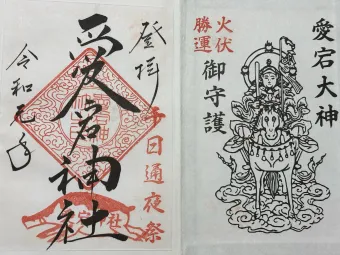 登拝
愛宕神社
千日通夜祭
令和元年
愛宕大神
御守護
火伏
勝運